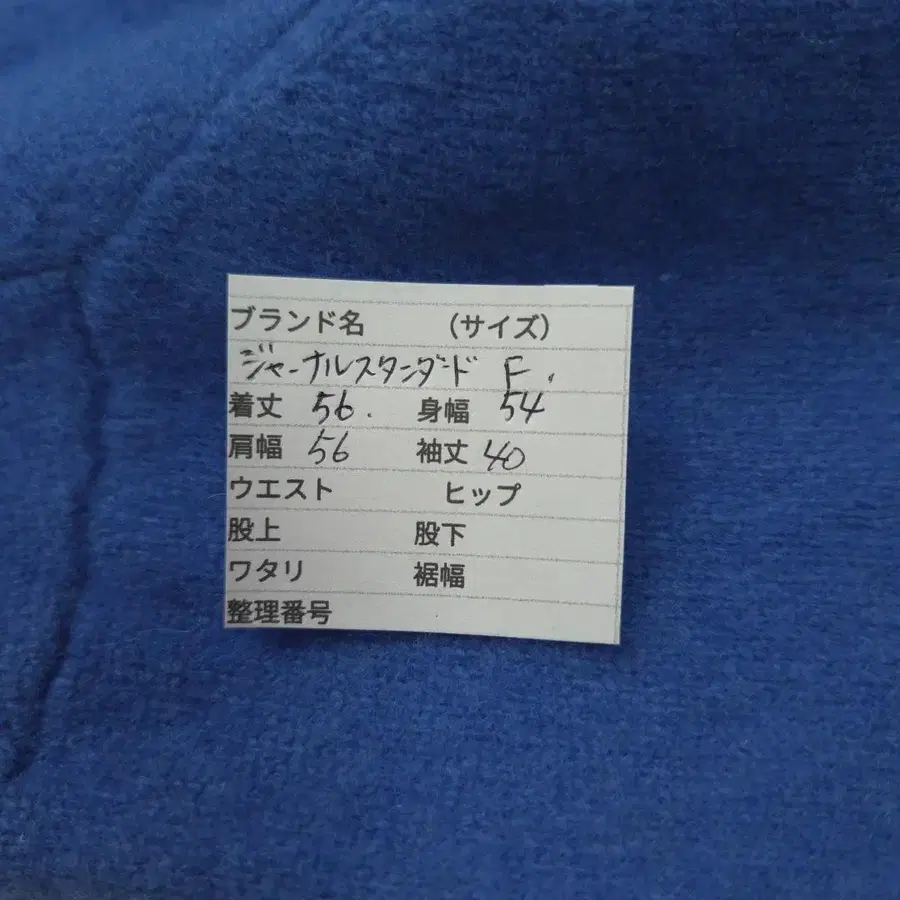 ブランド名 （サイズ）
ジャーナルスタンダード F.
着丈 56. 身幅 54
肩幅 56 袖丈 40
ウエスト ヒップ
股上 股下
ワタリ 裾幅
整理番号